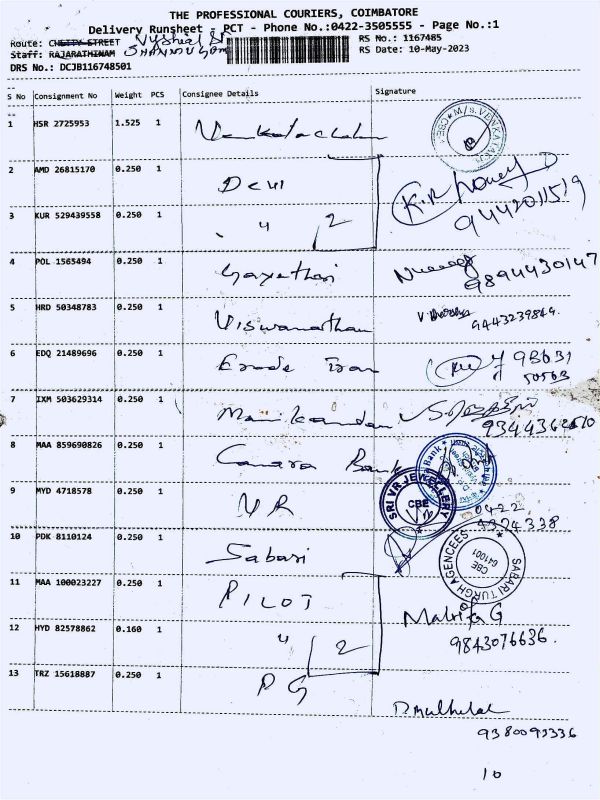 THE PROFESSIONAL COURIERS, COIMBATORE
Delivery Runsheet - PCT - Phone No.:0422-3505555 - Page No.:1
Route: CHETTY STREET
RS No.: 1167485
Staff: RAJARATHINAM SHANMUGAM
RS Date: 10-May-2023
DRS No.: DCJB116748501
S No Consignment No Weight PCS Consignee Details Signature
1 HSR 2725953 1.525 1 Venkatachalam
2 AMD 26815170 0.250 1 Devi
9442011519
3 KUR 529439558 0.250 1 " 2
4 POL 1565494 0.250 1 Gayathri
9894430147
5 HRD 50348783 0.250 1 Viswanathan
9443239849.
6 EDQ 21489696 0.250 1 Erode Iron
93631
50563
7 IXM 503629314 0.250 1 Manikandan
8 MAA 859690826 0.250 1 Canara Bank
9 MYD 4718578 0.250 1 VR
SRI VR JEWELLERY
CBE
0422
4324338
10 PDK 8110124 0.250 1 Sabari
SABARI TURGH AGENCEES
CBE
641001
11 MAA 100023227 0.250 1 PILOT
12 HYD 82578862 0.160 1 " 2
9843076636.
13 TRZ 15618887 0.250 1 PG
9380093336
10